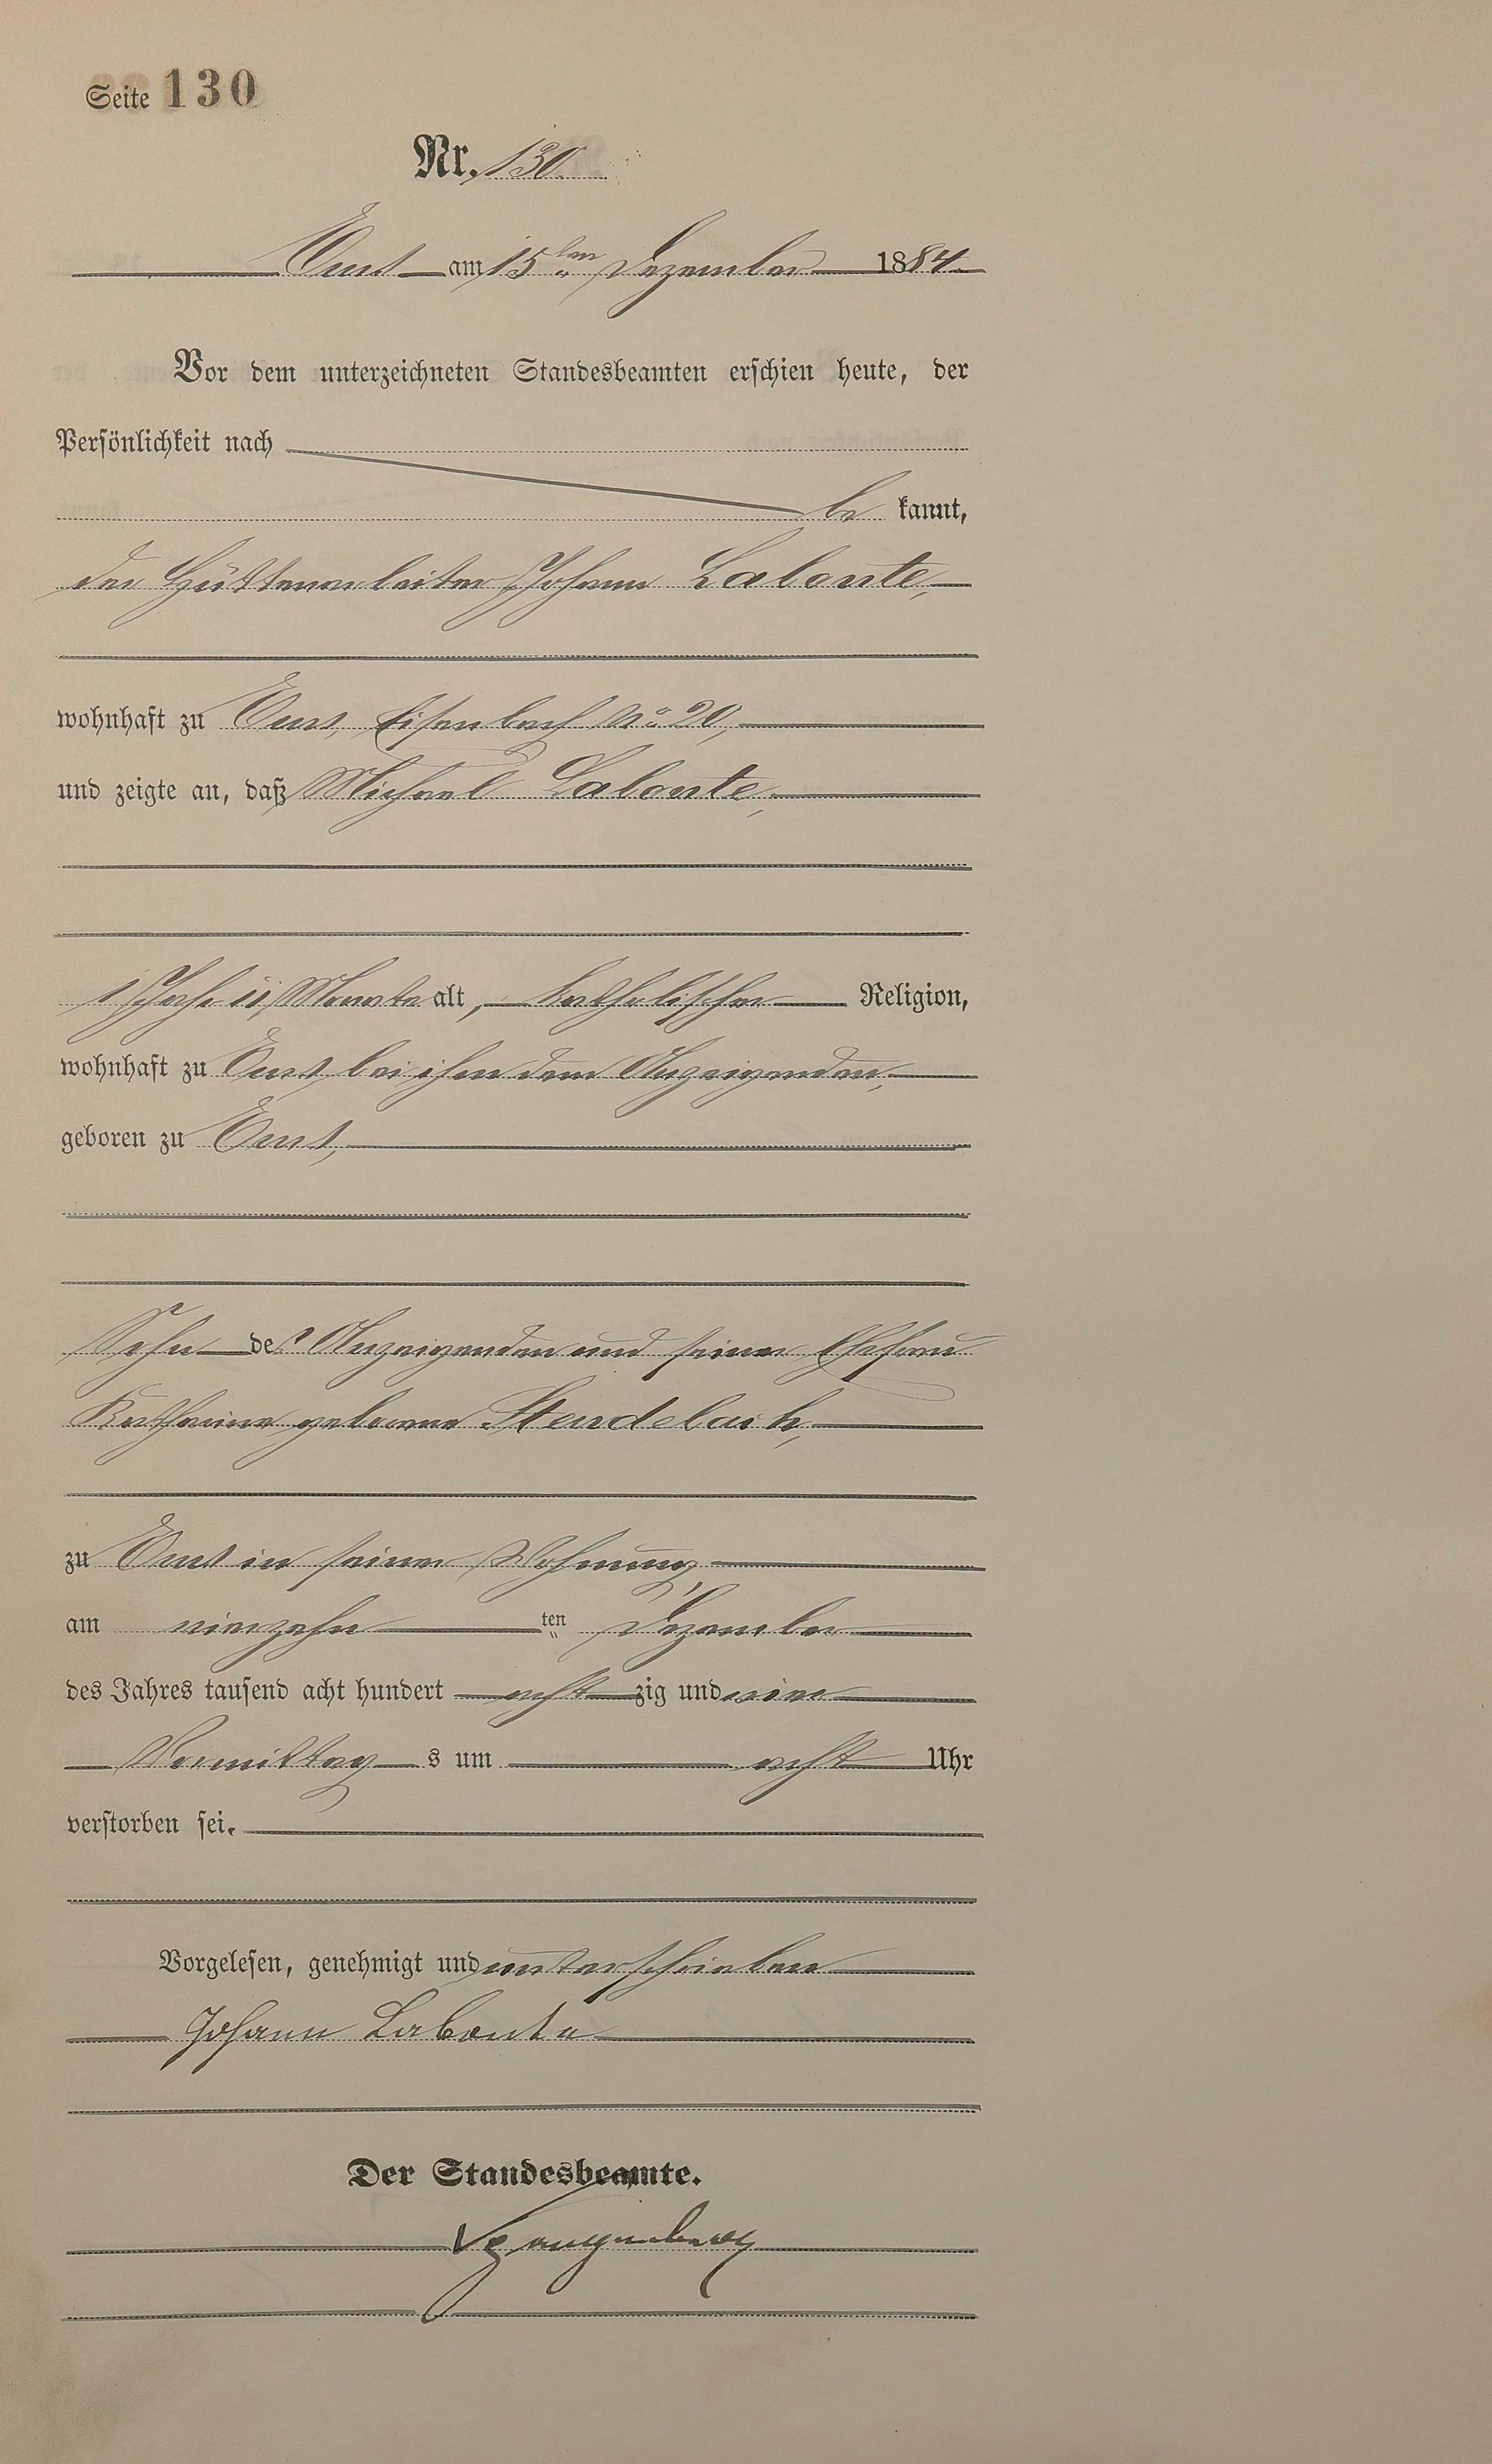 Seite 130
Nr. 130.
Ems am 15ten Dezember 1884.
Vor dem unterzeichneten Standesbeamten erschien heute, der
Persönlichkeit nach
be kannt,
der Hüttenarbeiter Johann Labonte,
wohnhaft zu Ems, Eisenbach No 20,
und zeigte an, daß Michael Labonte,
1 Jahr 11 Monate alt, katholischer Religion,
wohnhaft zu Ems, bei ihm dem Anzeigenden,
geboren zu Ems,
Sohn des Anzeigenden und seiner Ehefrau
Katharina geborene Stendebach,
zu Ems in seiner Wohnung,
am vierzehn ten Dezember
des Jahres tausend acht hundert acht zig und vier
Vormittag s um acht Uhr
verstorben sei.
Vorgelesen, genehmigt und unterschrieben
Johann Labonte
Der Standesbeamte.